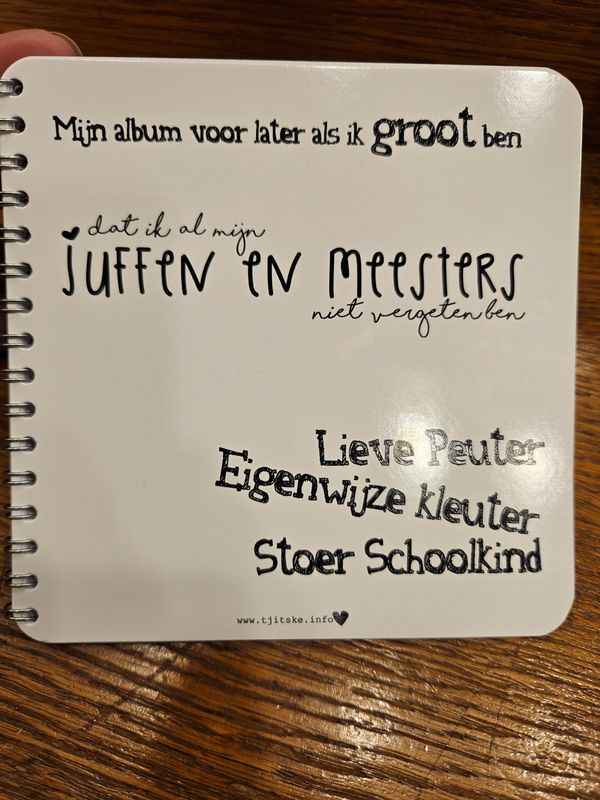 Mijn album voor later als ik groot ben
dat ik al mijn
JUFFEN EN MEESTERS
niet vergeten ben
Lieve Peuter
Eigenwijze kleuter
Stoer Schoolkind
www.tjitske.info